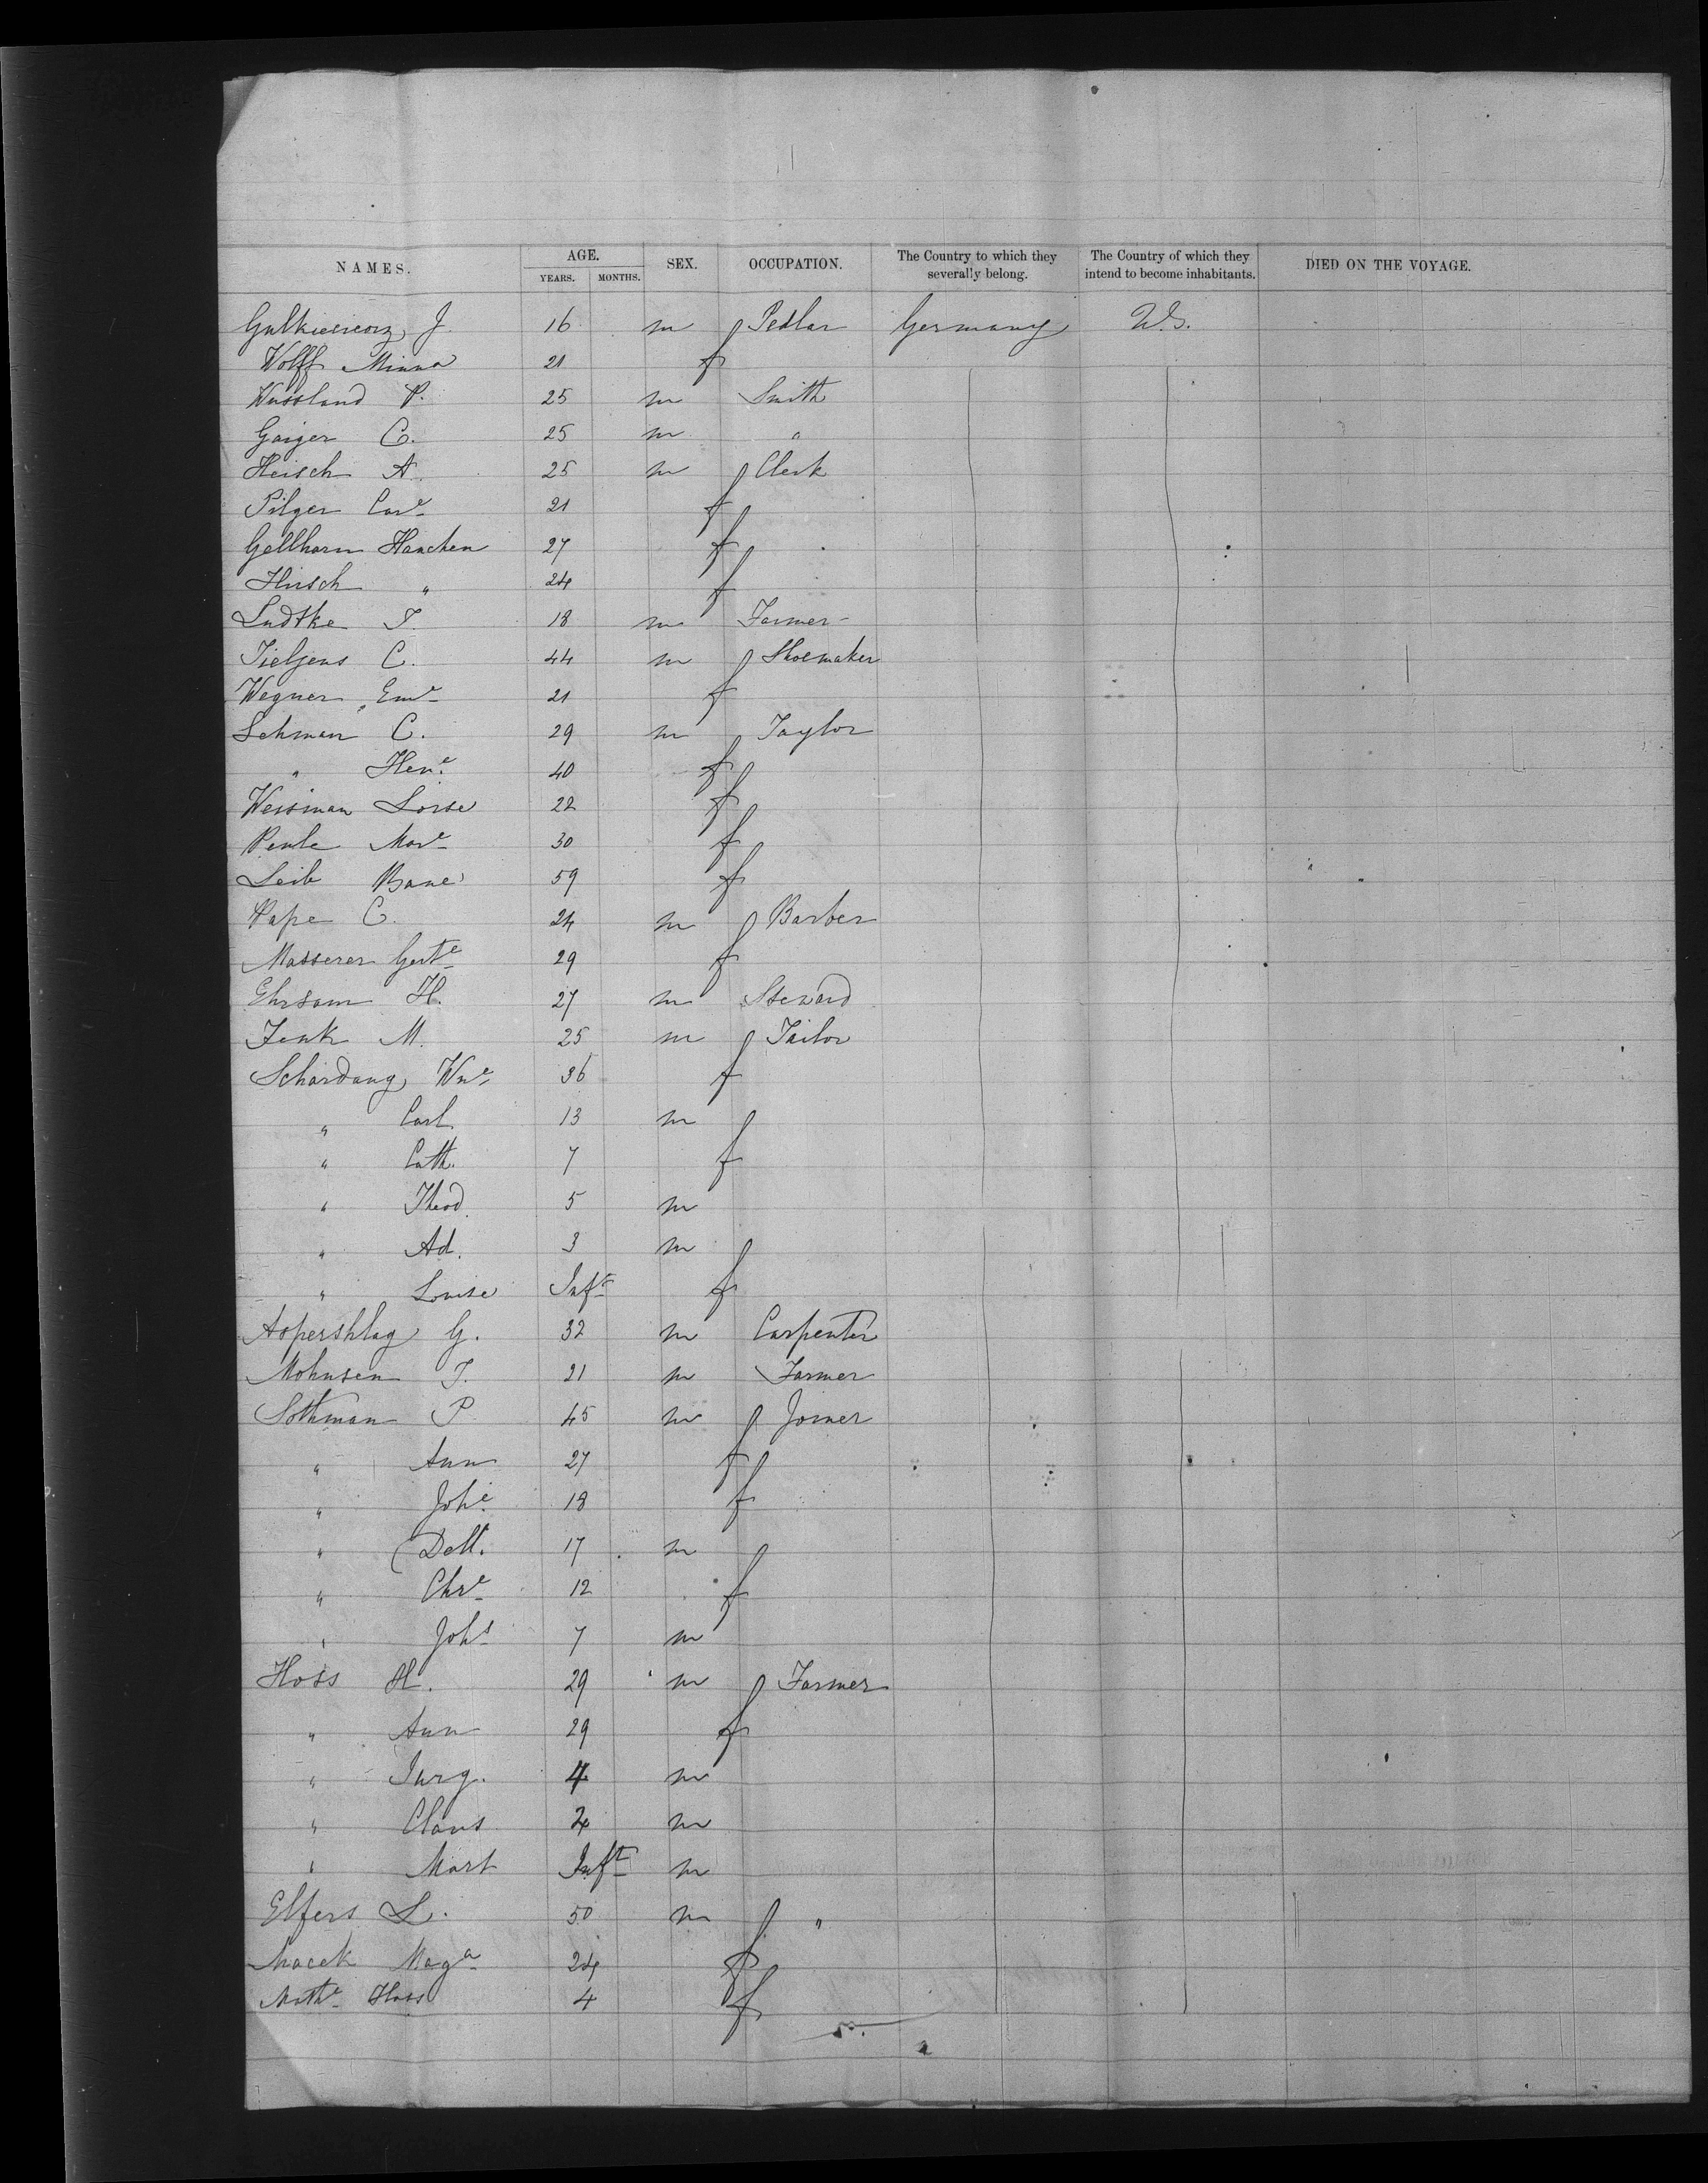 NAMES. AGE. YEARS. MONTHS. SEX. OCCUPATION. The Country to which they severally belong. The Country of which they intend to become inhabitants. DIED ON THE VOYAGE.
Gulkiewicz, J. 16 m Pedlar Germany U.S.
Wolff Minna 21 f
Wussland P. 25 m Smith
Gaiger C. 25 m "
Heisch A. 25 m Clerk
Pilger Care 21 f
Gellhorn Hanchen 27 f
Hirsch " 24 f
Ludtke J. 18 m Farmer
Tieljens C. 44 m Shoemaker
Wegner Eme 21 f
Lehman C. 29 m Taylor
" Hene 40 f
Weisman Loise 22 f
Penle Mare 30 f
Leib Bane 59 f
Pape C. 24 m Barber
Masserer Gerte 29 f
Ehrsam H. 27 m Steward
Fenk M. 25 m Tailor
Schardang Wme 36 f
" Carl 13 m
" Cath. 7 f
" Theod. 5 m
" Ad. 3 m
" Louise Inft f
Aspershlag G. 32 m Carpenter
Mohnsen J. 21 m Farmer
Sothman P 45 m Joiner
" Ann 27 f
" Johe 18 f
" Detl. 17 m
" Chre 12 f
" Johs 7 m
Hoss H. 29 m Farmer
" Ann 29 f
" Jurg. 4 m
" Claus m
" Mart Inft m
Elfers L. 50 m "
Maga 24 f
Hoss 4 f